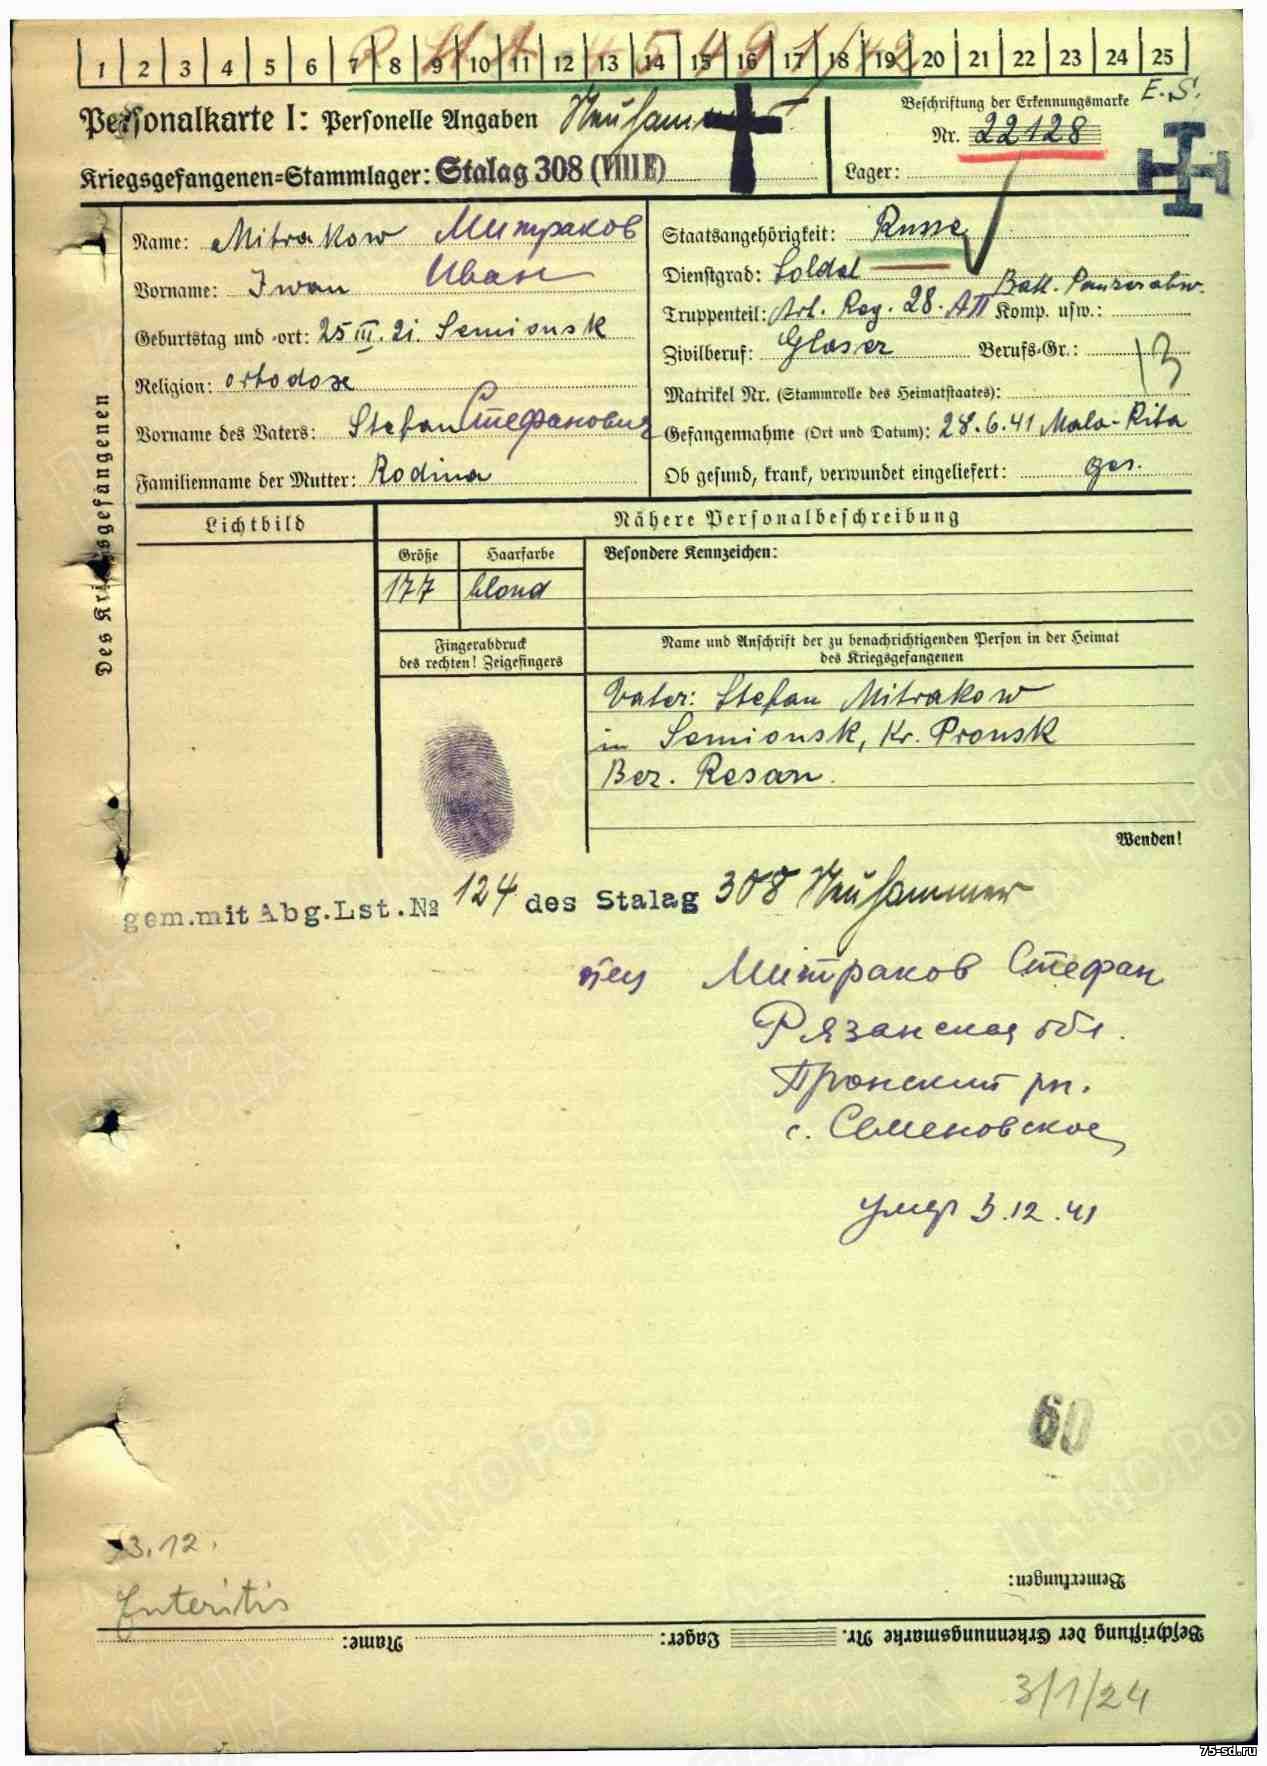 1 2 3 4 5 6 7 8 9 10 11 12 13 14 15 16 17 18 19 20 21 22 23 24 25
E.S.
Personalkarte I: Personelle Angaben Neuhammer
Beschriftung der Erkennungsmarke
Nr. 22128
Kriegsgefangenen=Stammlager: Stalag 308 (VIII E)
Lager:
Des Kriegsgefangenen
Name: Mitrakow Митраков
Vorname: Iwan Иван
Geburtstag und -ort: 25 III. 21. Semionsk
Religion: ortodox
Vorname des Vaters: Stefan Стефанович
Familienname der Mutter: Rodina
Staatsangehörigkeit: Russe
Dienstgrad: Soldat
Batl. Panzerabw.
Truppenteil: Art. Reg. 28. АП Komp. usw.:
Zivilberuf: Glaser Berufs-Gr.: 13
Matrikel Nr. (Stammrolle des Heimatstaates):
Gefangennahme (Ort und Datum): 28.6.41 Mala-Rita
Ob gesund, krank, verwundet eingeliefert: ges.
Lichtbild
Nähere Personalbeschreibung
Größe Haarfarbe Besondere Kennzeichen:
177 blond
Fingerabdruck
des rechten! Zeigefingers
Name und Anschrift der zu benachrichtigenden Person in der Heimat
des Kriegsgefangenen
Vater: Stefan Mitrakow
in Semionsk, Kr. Pronsk
Bez. Resan.
Wenden!
gem.mit Abg.Lst.№ 124 des Stalag 308 Neuhammer
Митраков Стефан
Рязанская обл.
Пронский рн.
с. Семеновское
умер 3.12.41
60
3.12.
Enteritis
Bemerkungen:
Beschriftung der Erkennungsmarke Nr. Lager: Name:
3/1/24
75-sd.ru